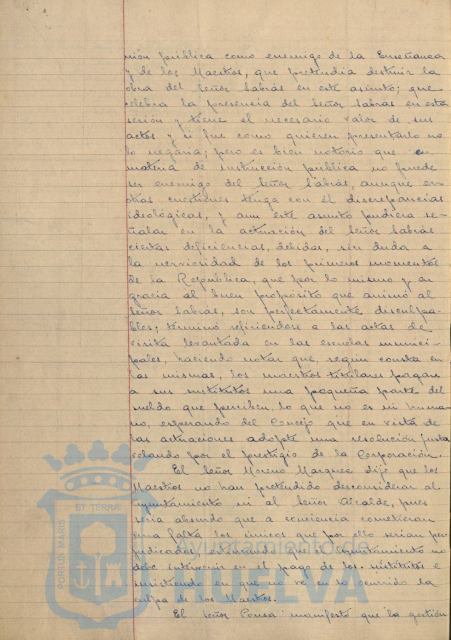 nión pública como enemigo de la Enseñanza
y de los Maestros, que pretendia destruir la
obra del Señor Sabrás en este asunto; que
celebra la presencia del Señor Sabrás en esta
sesión y tiene el necesario valor de sus
actos y si fue como quieren presentarlo no
lo negaria; pero es bien notorio que en
materia de instrucción pública no puede
ser enemigo del Señor Sabrás, aunque en
otras cuestiones tenga con él discrepancias
ideológicas, y aun este asunto pudiera se-
ñalar en la actuación del Señor Sabrás
ciertas deficiencias, debidas, sin duda a
la nerviosidad de los primeros momentos
de la República, que por lo mismo y en
gracia al buen proposito que animó al
Señor Sabrás, son perfectamente disculpa-
bles; terminó refiriendose a las actas de
visita levantada en las escuelas munici-
pales, haciendo notar que, segun consta en
las mismas, los maestros titulares pagan
a sus sustitutos una pequeña parte del
sueldo que perciben, lo que no es ni huma-
no, esperando del Concejo que en vista de
las actuaciones adopte una resolución justa
velando por el prestigio de la Corporación.
El Señor Moreno Marquez dijo que los
Maestros no han pretendido desconsiderar al
Ayuntamiento ni al Señor Alcalde, pues
seria absurdo que a conciencia cometieran
una falta los unicos que por ello serian per-
judicados, estimando que el Ayuntamiento no
debe intervenir en el pago de los sustitutos e
insistiendo en que no ve en lo ocurrido la
culpa de los Maestros.
El Señor Ponce manifestó que la gestión
PORTUS MARIS
ET TERRAE
Ayuntamiento de
HUELVA